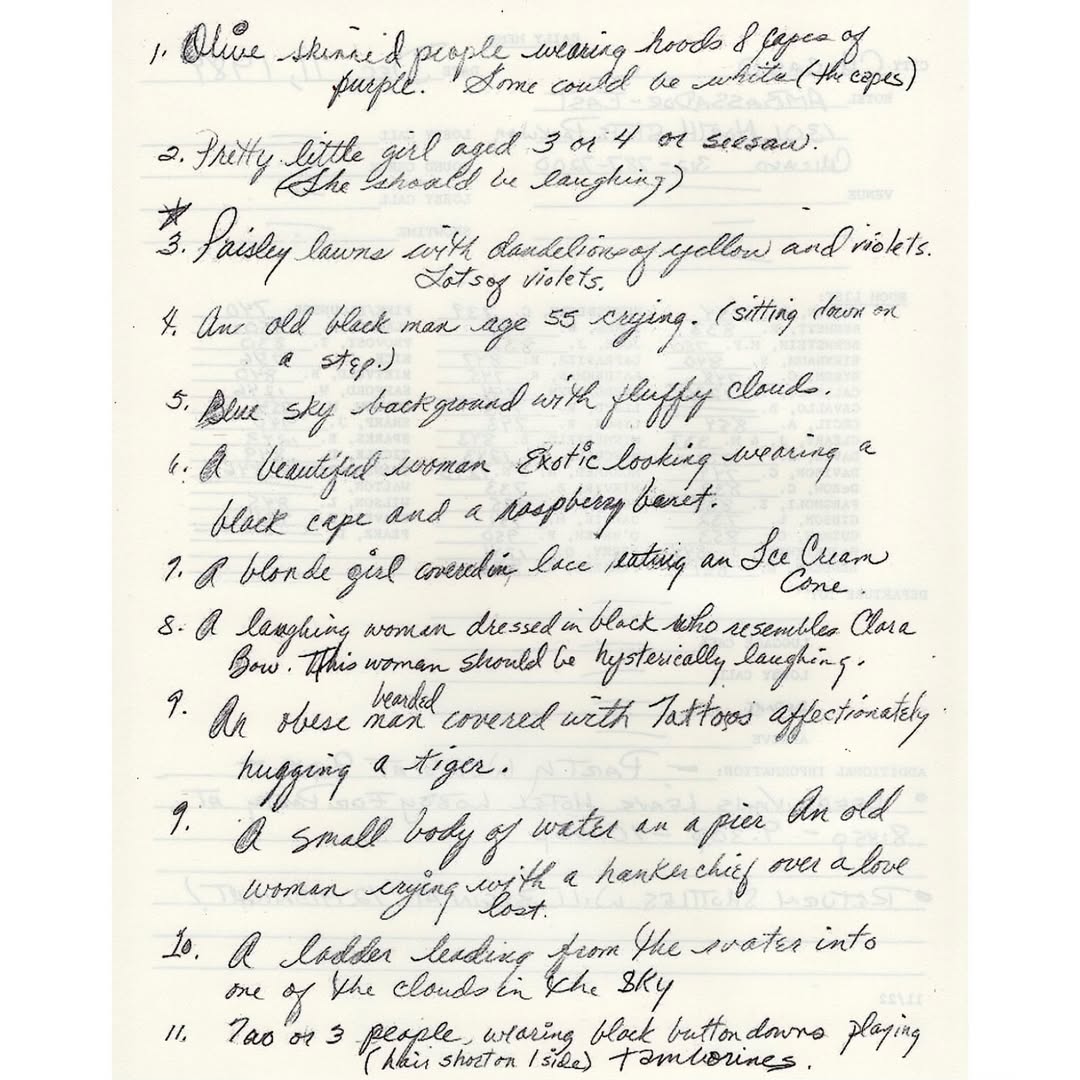 1. Olive skinned people wearing hoods & capes of
purple. Some could be white (the capes)
2. Pretty little girl aged 3 or 4 or seesaw.
(She should be laughing)
3. Paisley lawns with dandelions of yellow and violets.
Lots of violets.
4. An old black man age 55 crying. (sitting down on
a step.)
5. Blue sky background with fluffy clouds.
6. A beautiful woman Exotic looking wearing a
black cape and a raspberry beret.
7. A blonde girl covered in lace eating an Ice Cream
Cone.
8. A laughing woman dressed in black who resembles Clara
Bow. This woman should be hysterically laughing.
bearded
9. An obese man covered with Tattoos affectionately
hugging a tiger.
9. A small body of water an a pier An old
woman crying with a hankerchief over a love
lost.
10. A ladder leading from the water into
one of the clouds in the Sky
11. Two or 3 people, wearing black button downs playing
(hair short on 1 side) tamborines.